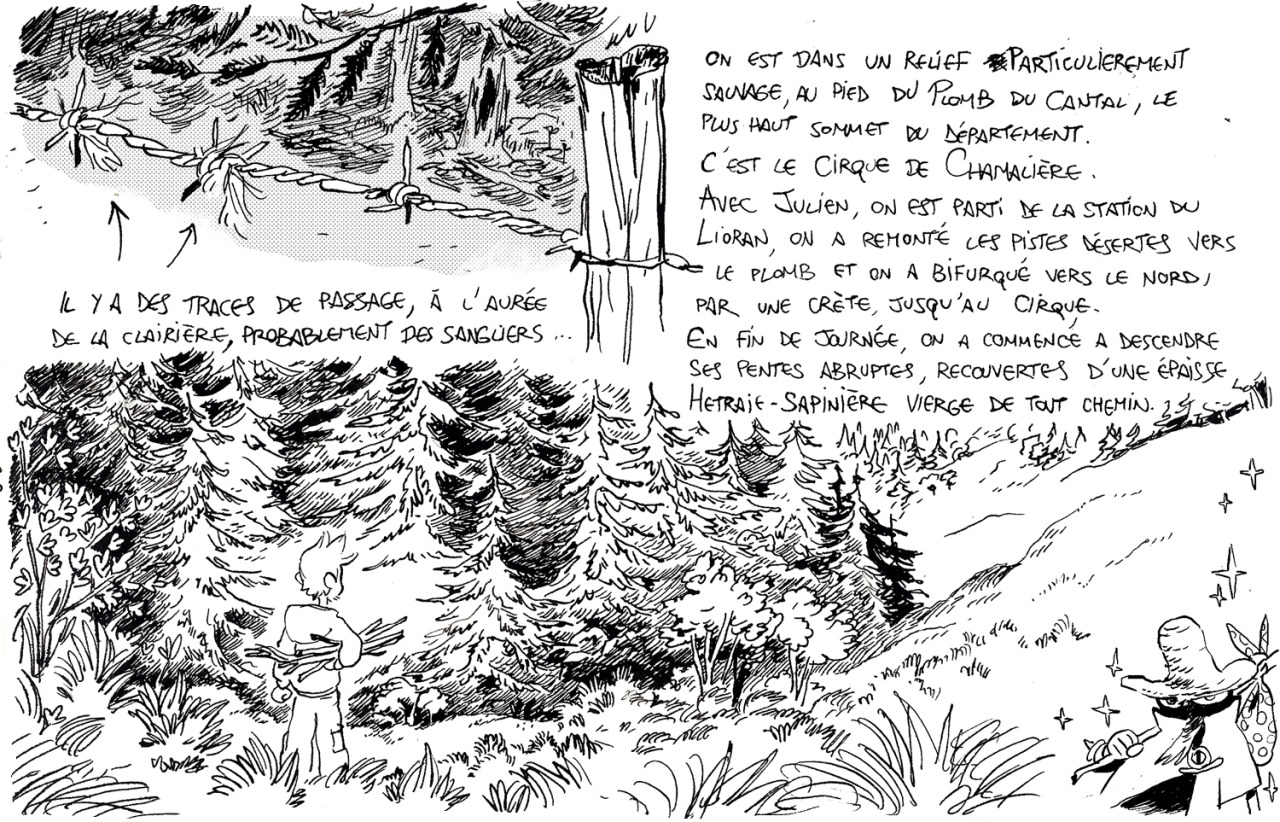 IL Y A DES TRACES DE PASSAGE, À L'AURÉE
DE LA CLAIRIÈRE, PROBABLEMENT DES SANGLIERS...
ON EST DANS UN RELIEF PARTICULIEREMENT
SAUVAGE, AU PIED DU PLOMB DU CANTAL, LE
PLUS HAUT SOMMET DU DÉPARTEMENT.
C'EST LE CIRQUE DE CHAMALIÈRE.
AVEC JULIEN, ON EST PARTI DE LA STATION DU
LIORAN, ON A REMONTÉ LES PISTES DÉSERTES VERS
LE PLOMB ET ON A BIFURQUÉ VERS LE NORD,
PAR UNE CRÈTE, JUSQU'AU CIRQUE.
EN FIN DE JOURNÉE, ON A COMMENCÉ A DESCENDRE
SES PENTES ABRUPTES, RECOUVERTES D'UNE ÉPAISSE
HETRAIE-SAPINIÈRE VIERGE DE TOUT CHEMIN.